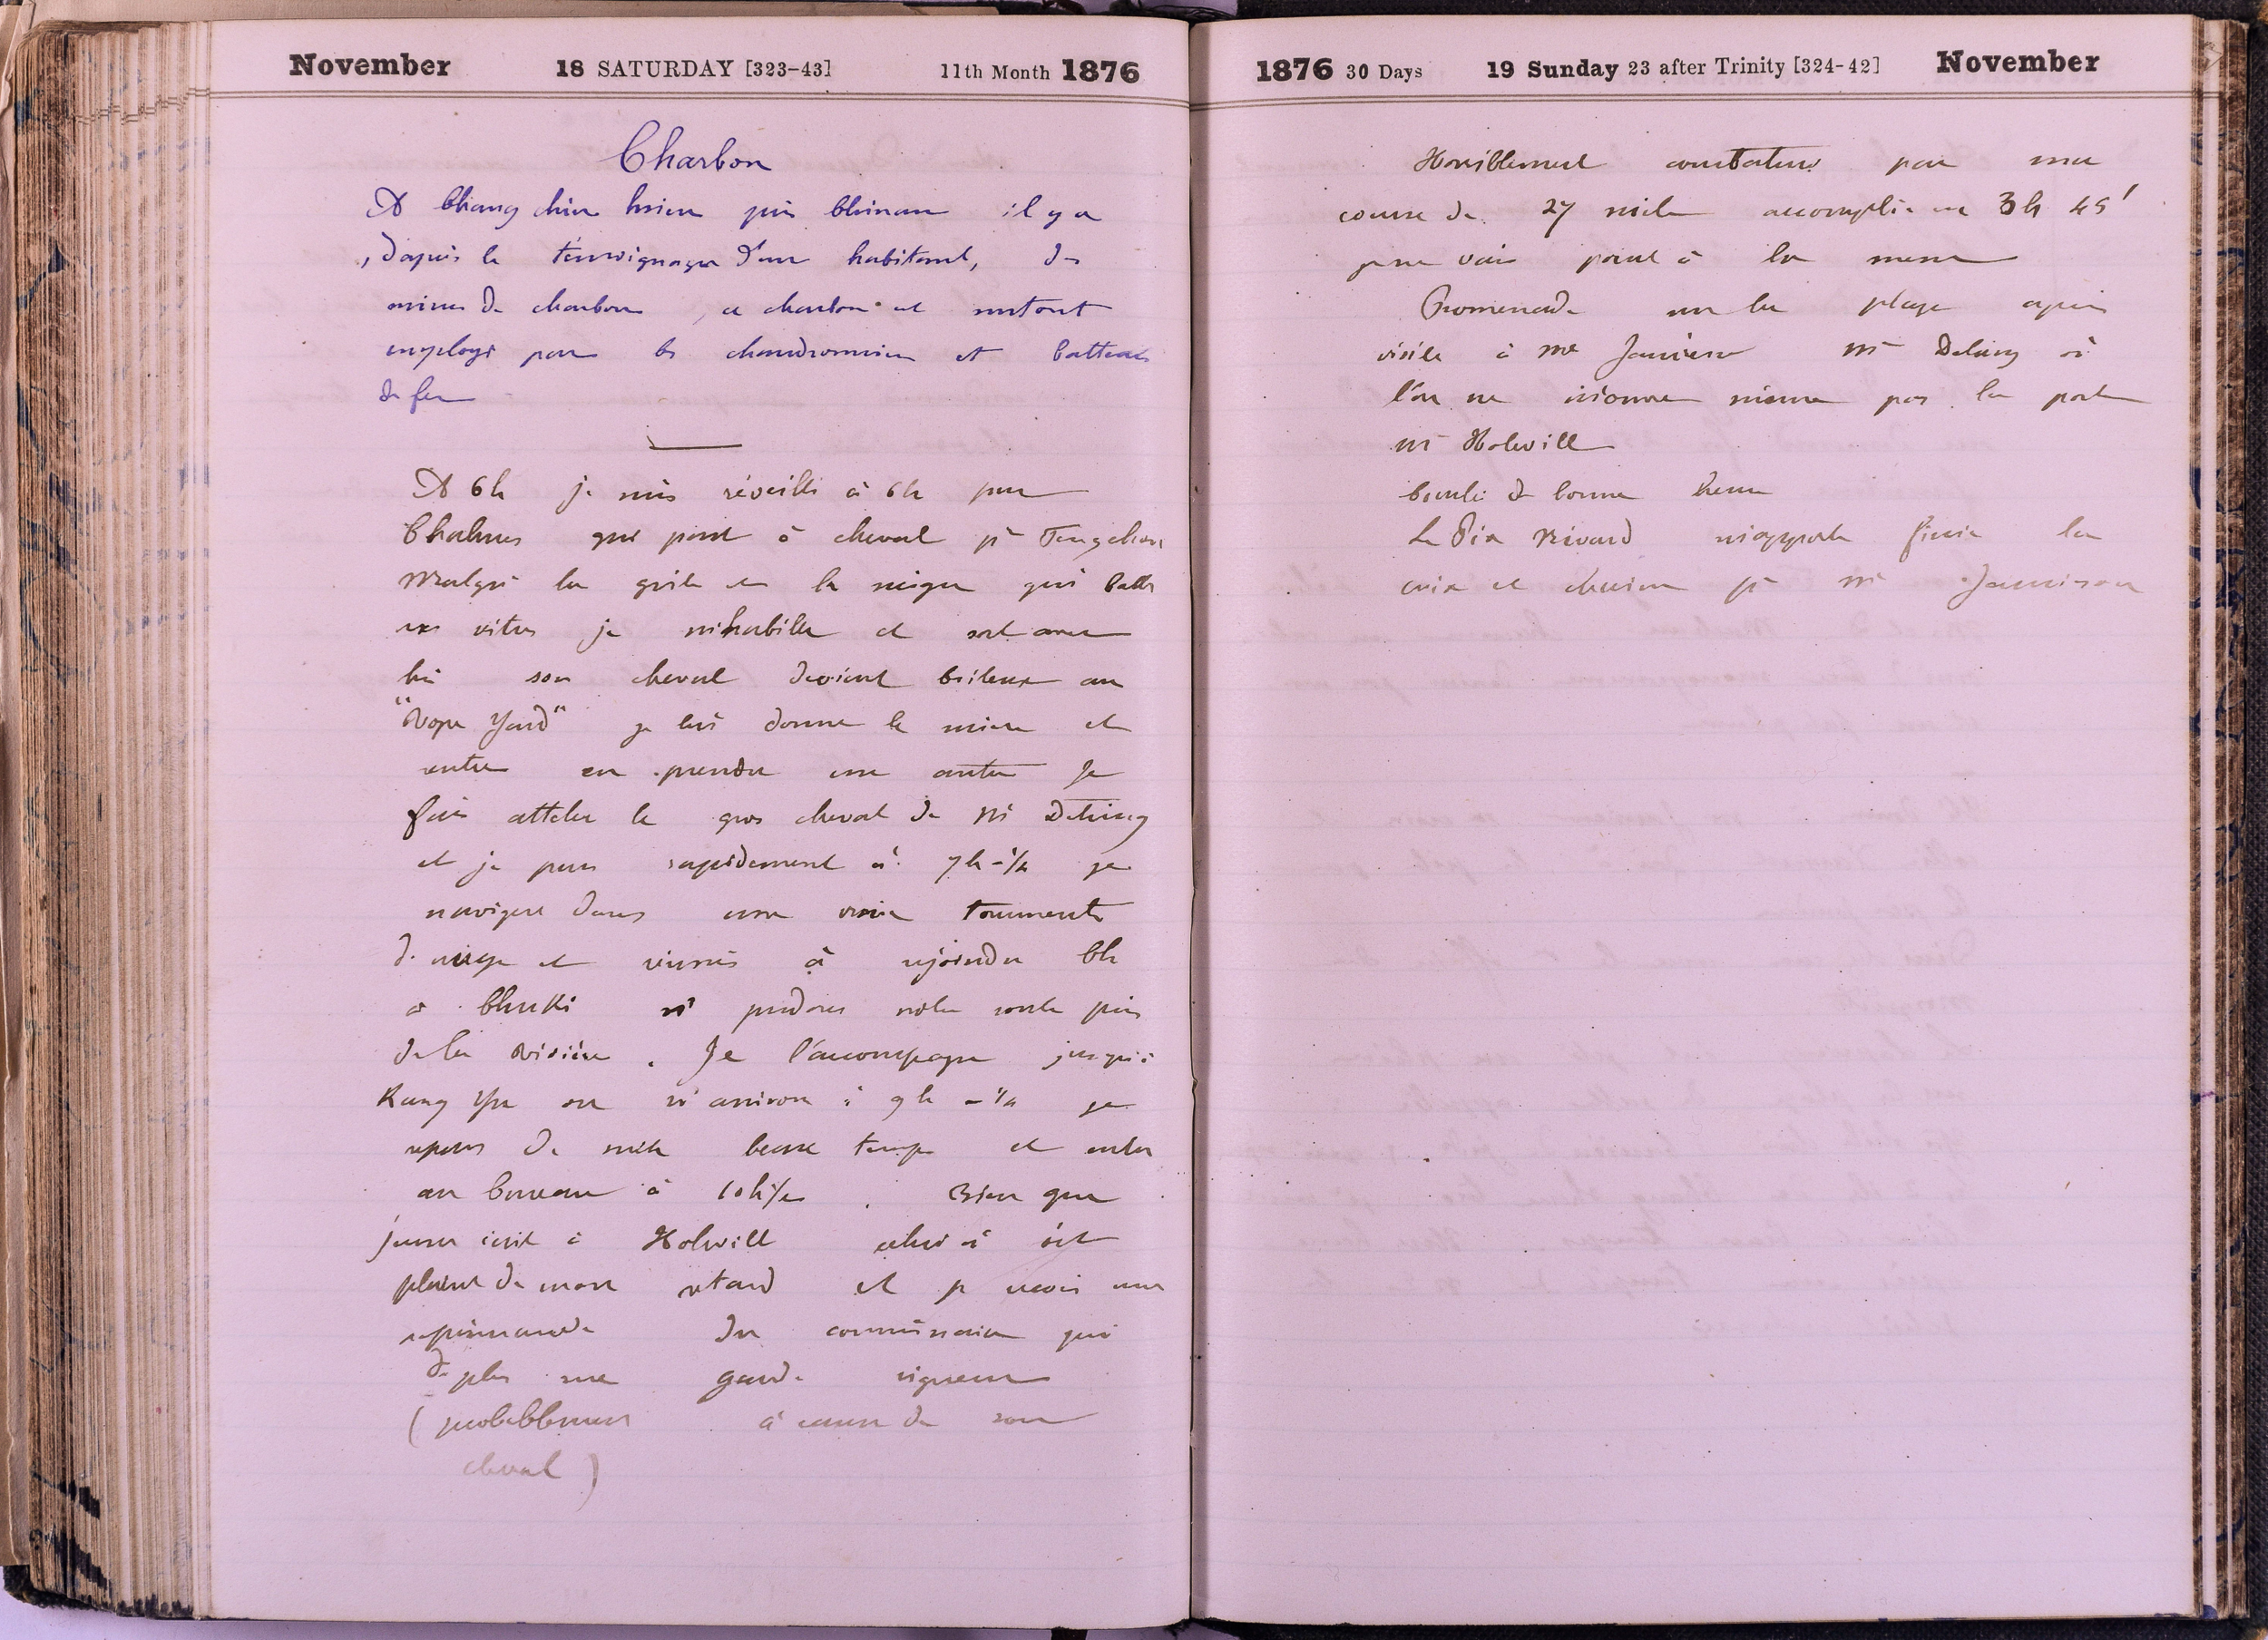 November 18 SATURDAY [323-43] 11th Month 1876
Charbon
A Chang chin hsien près Chinan il y a
, d'apris le témoignage d'un habitant, des
mines de charbon , ce charbon est surtout
employé par les chaudronniers et batteurs
de fer
A 6h je suis réveillé à 6h par
Chalmers qui part à cheval pr Tengchow
Malgré la grêle et la neige qui battre
les vitres je m'habille et sort avec
lui son cheval devient boiteux au
"Rope Yard" je lui donne le mien et
rentre en prendre un autre Je
fais atteler le gros cheval de Mr Detring
et je pars rapidement à 7h - 1/2 je
navigue dans une vraie tourmente
de neige et réussis à rejoindre Ch
a Chukki ns perdons notre route près
de la Rivière . Je l'accompagne jusqu'à
Kang Yu ou ns arrivons à 9h - 1/4 je
repars de suite beau temps et entre
au bureau à 10h 1/2 . Bien que
j'eusse écrit à Holwill celui ci s'est
plaint de mon retard et je reçois une
reprimande du commissaire qui
de plus me garde rigueur
( probablement à cause de son
cheval )
1876 30 Days 19 Sunday 23 after Trinity [324-42] November
Horriblement courbaturé par ma
course de 27 miles accomplie en 3h 45'
je ne vais point à la messe
Promenade sur la plage après
visite à Mr Jamieson Mr Detring où
l'on ne m'ouvre même pas la porte
Mr Holwill
de bonne heure
Le Père Rivard m'apporte finie la
croix et chaine pr Mr Jamieson